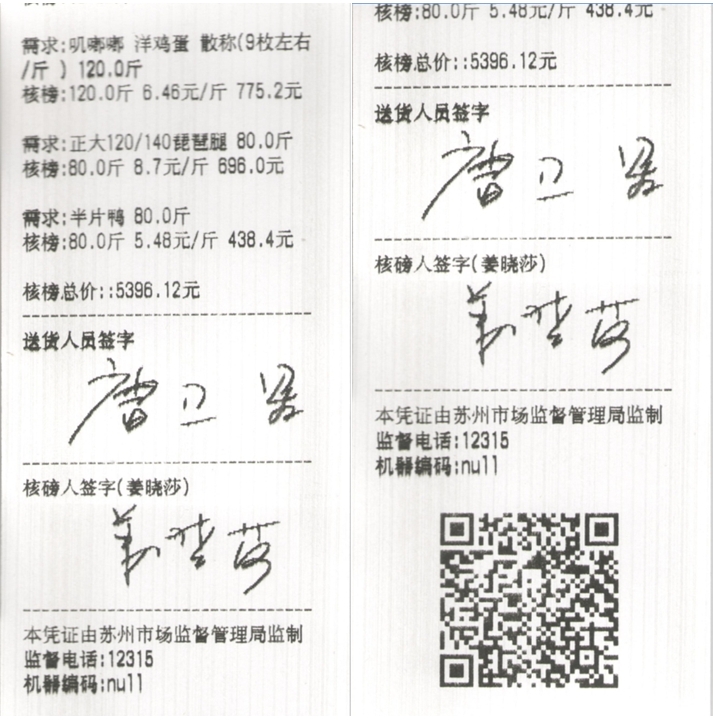 需求:叽嘟嘟 洋鸡蛋 散称(9枚左右
/斤 ) 120.0斤
核榜:120.0斤 6.46元/斤 775.2元
需求:正大120/140琵琶腿 80.0斤
核榜:80.0斤 8.7元/斤 696.0元
需求:半片鸭 80.0斤
核榜:80.0斤 5.48元/斤 438.4元
核榜总价::5396.12元
送货人员签字
核磅人签字(姜晓莎)
本凭证由苏州市场监督管理局监制
监督电话:12315
机器编码:null
核榜:80.0斤 5.48元/斤 438.4元
核榜总价::5396.12元
送货人员签字
核磅人签字(姜晓莎)
本凭证由苏州市场监督管理局监制
监督电话:12315
机器编码:null